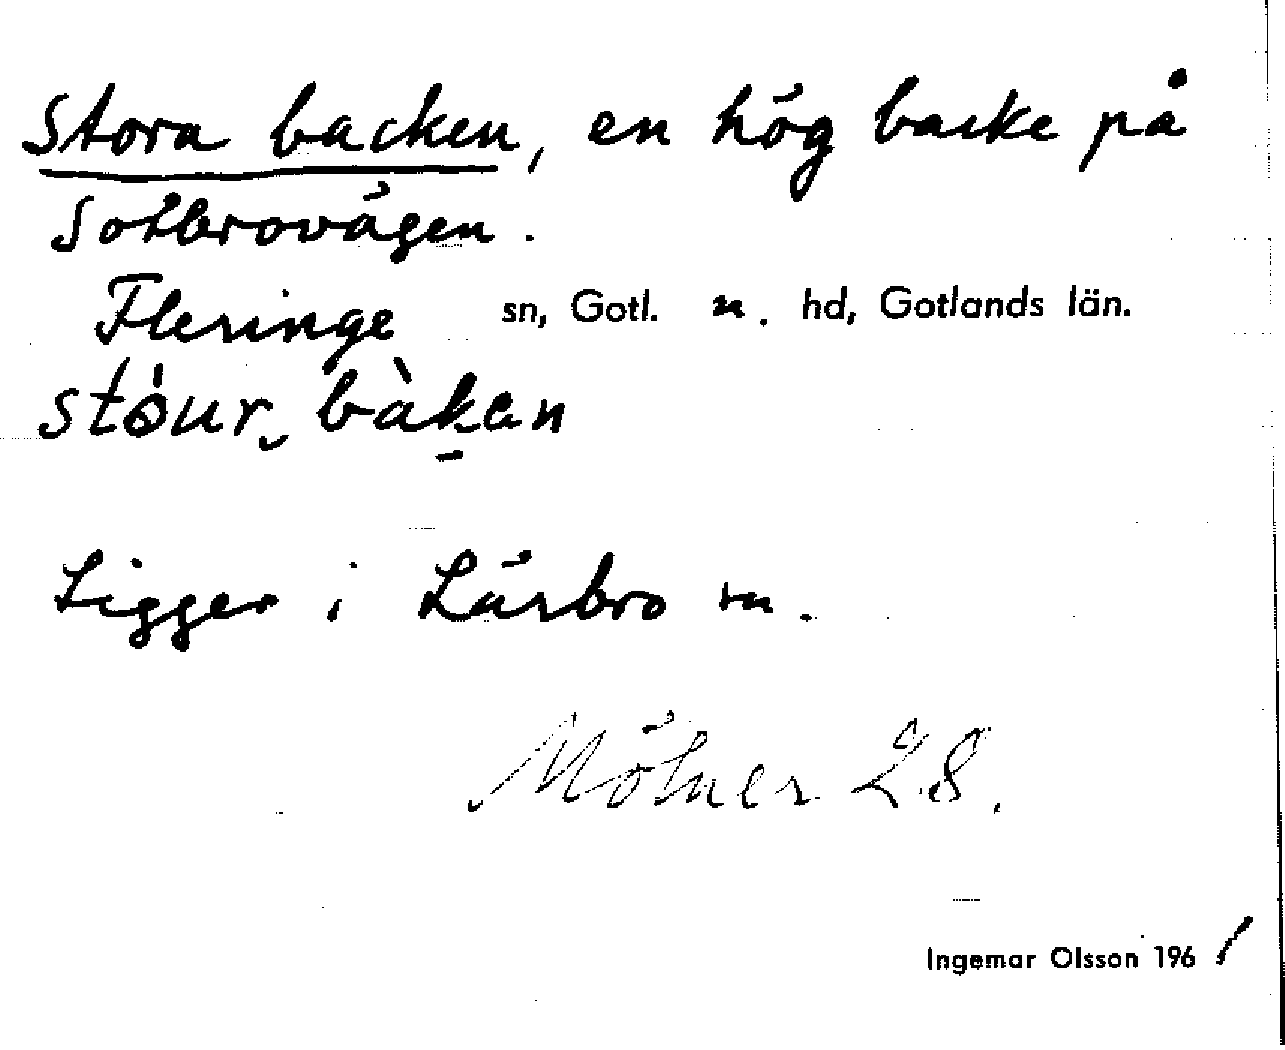 Stora backen, en hög backe på
Sotbrovägen.
Fleringe sn, Gotl. n. hd, Gotlands län.
stòur‿bàkan
Ligger i Lärbro sn.
Mölner 28.
Ingemar Olsson 1961